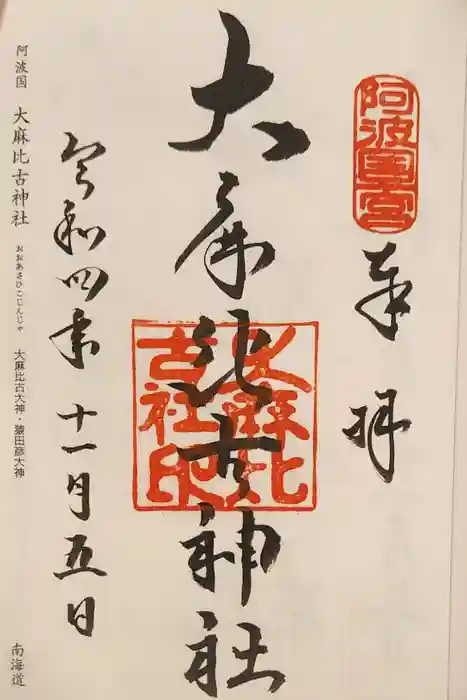 阿波國一宮
奉拝
大麻比古神社
大麻比古社印
令和四年十一月五日
阿波国 大麻比古神社 おおあさひこじんじゃ 大麻比古大神・猿田彦大神
南海道